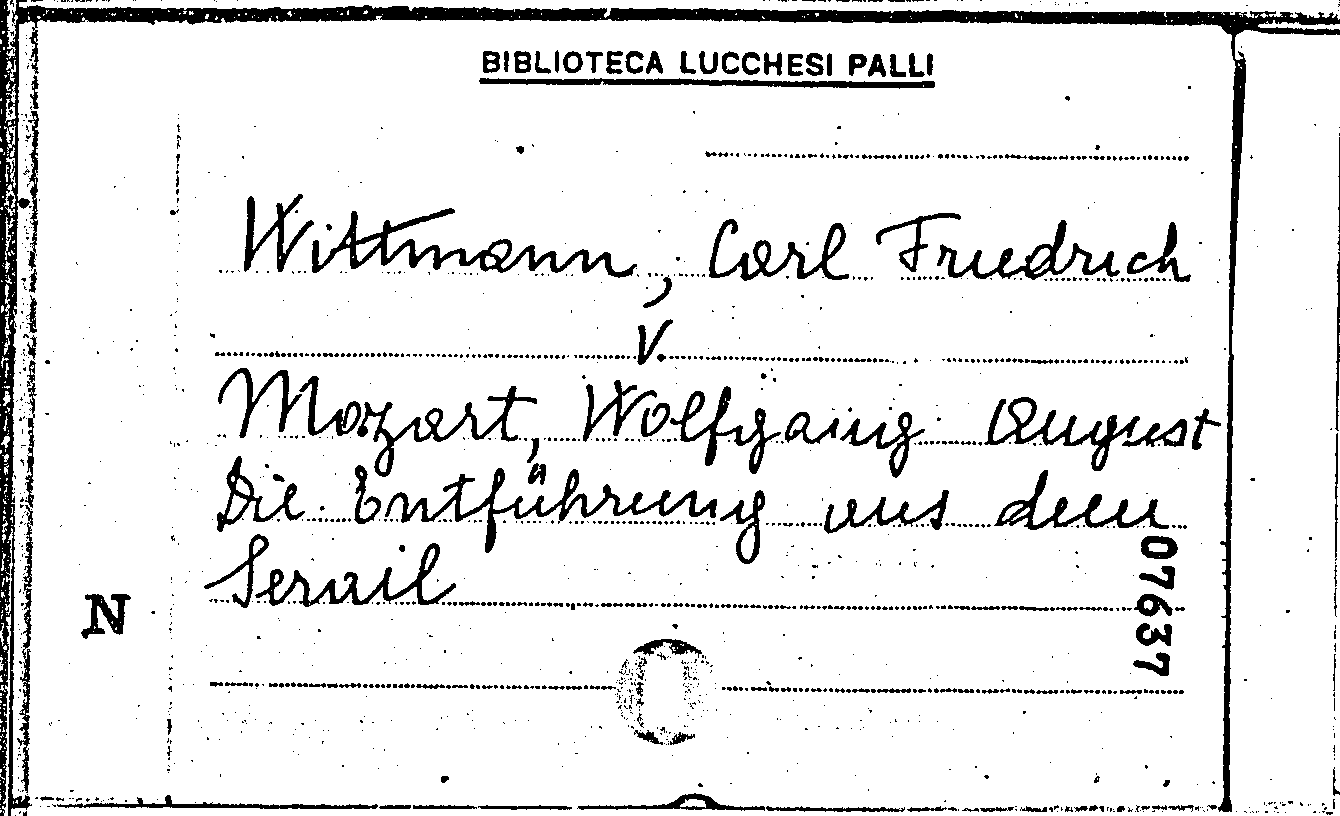 BIBLIOTECA LUCCHESI PALLI
Wittmann, Carl Friedrich
V.
Mozart, Wolfgang August
Die Entführung aus dem
Serail
N
07637